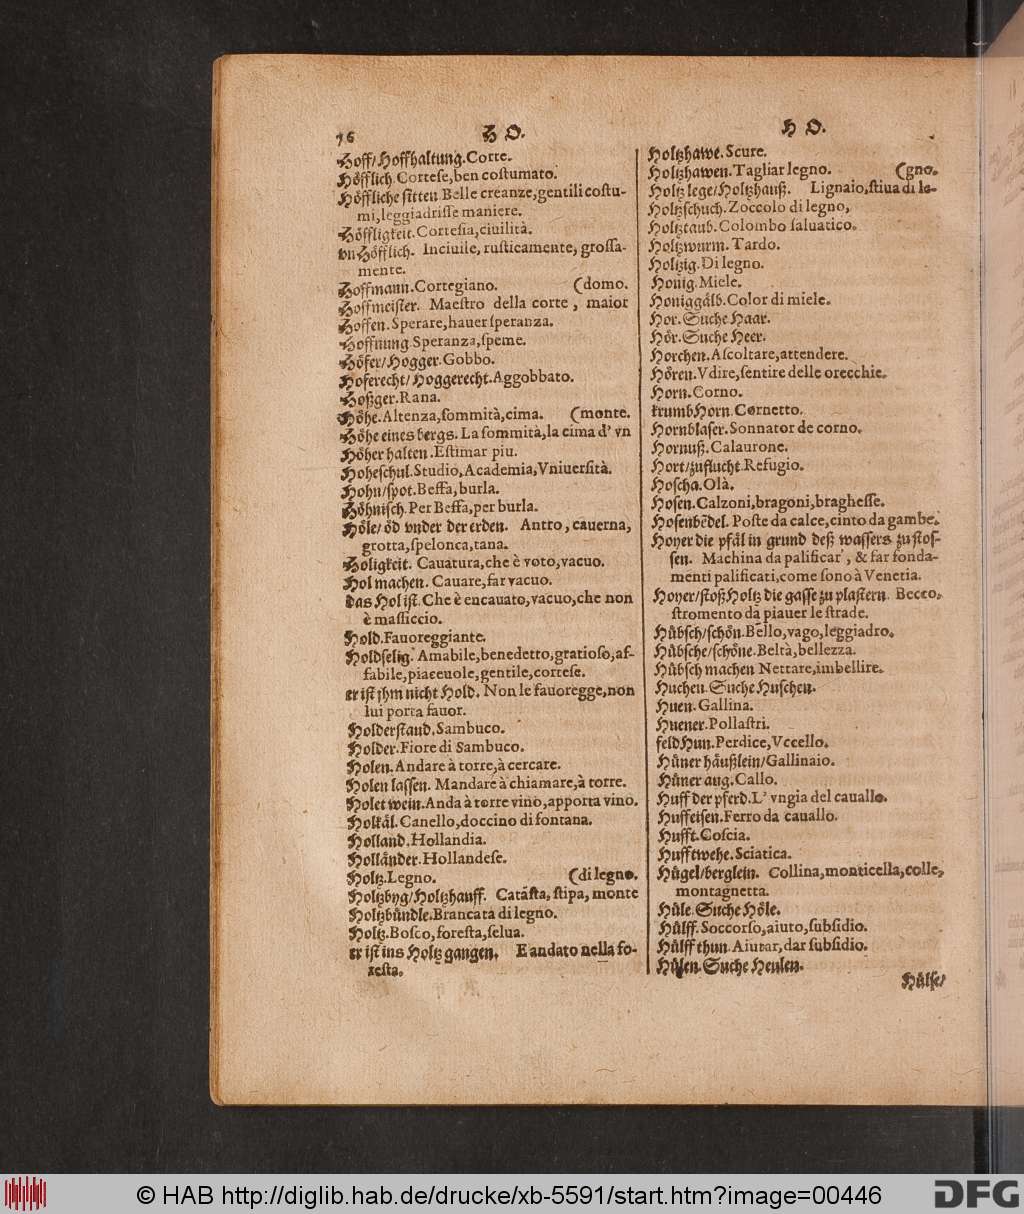 76
H O.
Hoff/Hoffhaltung.Corte.
Höfflich.Cortese,ben costumato.
Höffliche sitten Belle creanze,gentili costu-
mi,leggiadrisse maniere.
Höffligkeit.Cortesia,ciuilità.
vnHöfflich. Inciuile, rusticamente, grossa-
mente.
Hoffmann.Cortegiano. (domo.
Hoffmeister. Maestro della corte, maior
Hoffen.Sperare,hauer speranza.
Hoffnung Speranza,speme.
Höfer/Hogger.Gobbo.
Hoferecht/Hoggerecht.Aggobbato.
Hoßger.Rana.
Höhe.Altenza,sommità,cima. (monte.
Höhe eines bergs. La sommità,la cima d' vn
Höher halten.Estimar piu.
Hoheschul.Studio,Academia,Vniuersità.
Hohn/spot.Beffa,burla.
Höhnisch.Per Beffa,per burla.
Höle/öd vnder der erden. Antro, cauerna,
grotta,spelonca,tana.
Holigkeit. Cauatura,che è voto,vacuo.
Hol machen. Cauare,far vacuo.
das Hol ist.Che è encauato,vacuo,che non
è massiccio.
Hold.Fauoreggiante.
Holdselig. Amabile,benedetto,gratioso,af-
fabile,piaceuole,gentile,cortese.
er ist jhm nicht Hold. Non le fauoregge,non
lui porta fauor.
Holderstaud.Sambuco.
Holder.Fiore di Sambuco.
Holen.Andare à torre,à cercare.
Holen lassen. Mandare à chiamare,à torre.
Holet wein.Anda à torre vino,apporta vino.
Holkäl.Canello,doccino di fontana.
Holland.Hollandia.
Holländer.Hollandese.
Holtz.Legno. (di legno.
Holtzbyg/Holtzhauff. Catāsta, stipa, monte
Holtzbündle.Brancata di legno.
Holtz.Bosco,foresta,selua.
er ist ins Holtz gangen. E andato nella fo-
resta.
H O.
Holtzhawe.Scure.
Holtzhawen.Tagliar legno. (gno.
Holtz lege/Holtzhauß. Lignaio,stiua di le-
Holtzschuch.Zoccolo di legno,
Holtztaub.Colombo saluatico.
Holtzwurm.Tardo.
Holtzig.Di legno.
Honig.Miele.
Honiggälb.Color di miele.
Hor.Suche Haar.
Hör.Suche Heer.
Horchen.Ascoltare,attendere.
Hören.Vdire,sentire delle orecchie.
Horn.Corno.
krumbHorn.Cornetto.
Hornblaser.Sonnator de corno.
Hornuß.Calaurone.
Hort/zuflucht.Refugio.
Hoscha.Olà.
Hosen.Calzoni,bragoni,braghesse.
Hosenbēdel. Poste da calce,cinto da gambe.
Hoyer die pfäl in grund deß wassers zu stos-
sen. Machina da palificar', & far fonda-
menti palificati,come sono à Venetia.
Hoyer/stoß Holtz die gasse zu plastern. Becco.
stromento da piauer le strade.
Hübsch/schön.Bello,vago,leggiadro.
Hübsche/schöne.Beltà,bellezza.
Hübsch machen Nettare,imbellire.
Huchen.Suche Huschen.
Huen.Gallina.
Huener.Pollastri.
feldHun.Perdice,Vccello.
Hüner häußlein/Gallinaio.
Hüner aug.Callo.
Huff der pferd.L' vngia del cauallo.
Huffeisen.Ferro da cauallo.
Hufft.Coscia.
Hufftwehe.Sciatica.
Hügel/berglein. Collina,monticella,colle,
montagnetta.
Hüle.Suche Höle.
Hülff.Soccorso,aiuto,subsidio.
Hülff thun.Aiutar,dar subsidio.
Hülen.Suche Heulen.
Hülse/
© HAB http://diglib.hab.de/drucke/xb-5591/start.htm?image=00446
DFG